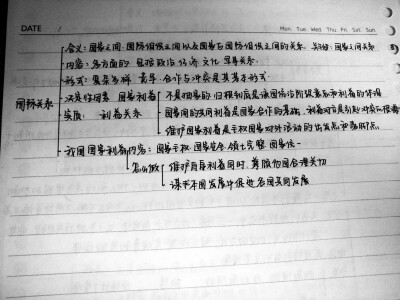 DATE / Mon Tue Wed Thu Fri Sat Sun
含义：国家之间、国际组织之间以及国家与国际组织之间的关系。 国家之间关系
内容：多方面的 包括政治 经济 文化 军事关系.
形式：复杂多样 竞争、合作与冲突是其基本形式.
决定性因素 国家利益 不是抽象的
国际关系
实质： 利益关系 国家间的共同利益是国家合作的基础，利益对立是引起
维护国家利益是主权国家对外活动的出发点和落脚点
我国国家利益内容：国家主权 国家安全 领土完整 国家统一
怎么做 维护自身利益同时，兼顾他国合理关切
谋求本国发展中促进各国共同发展